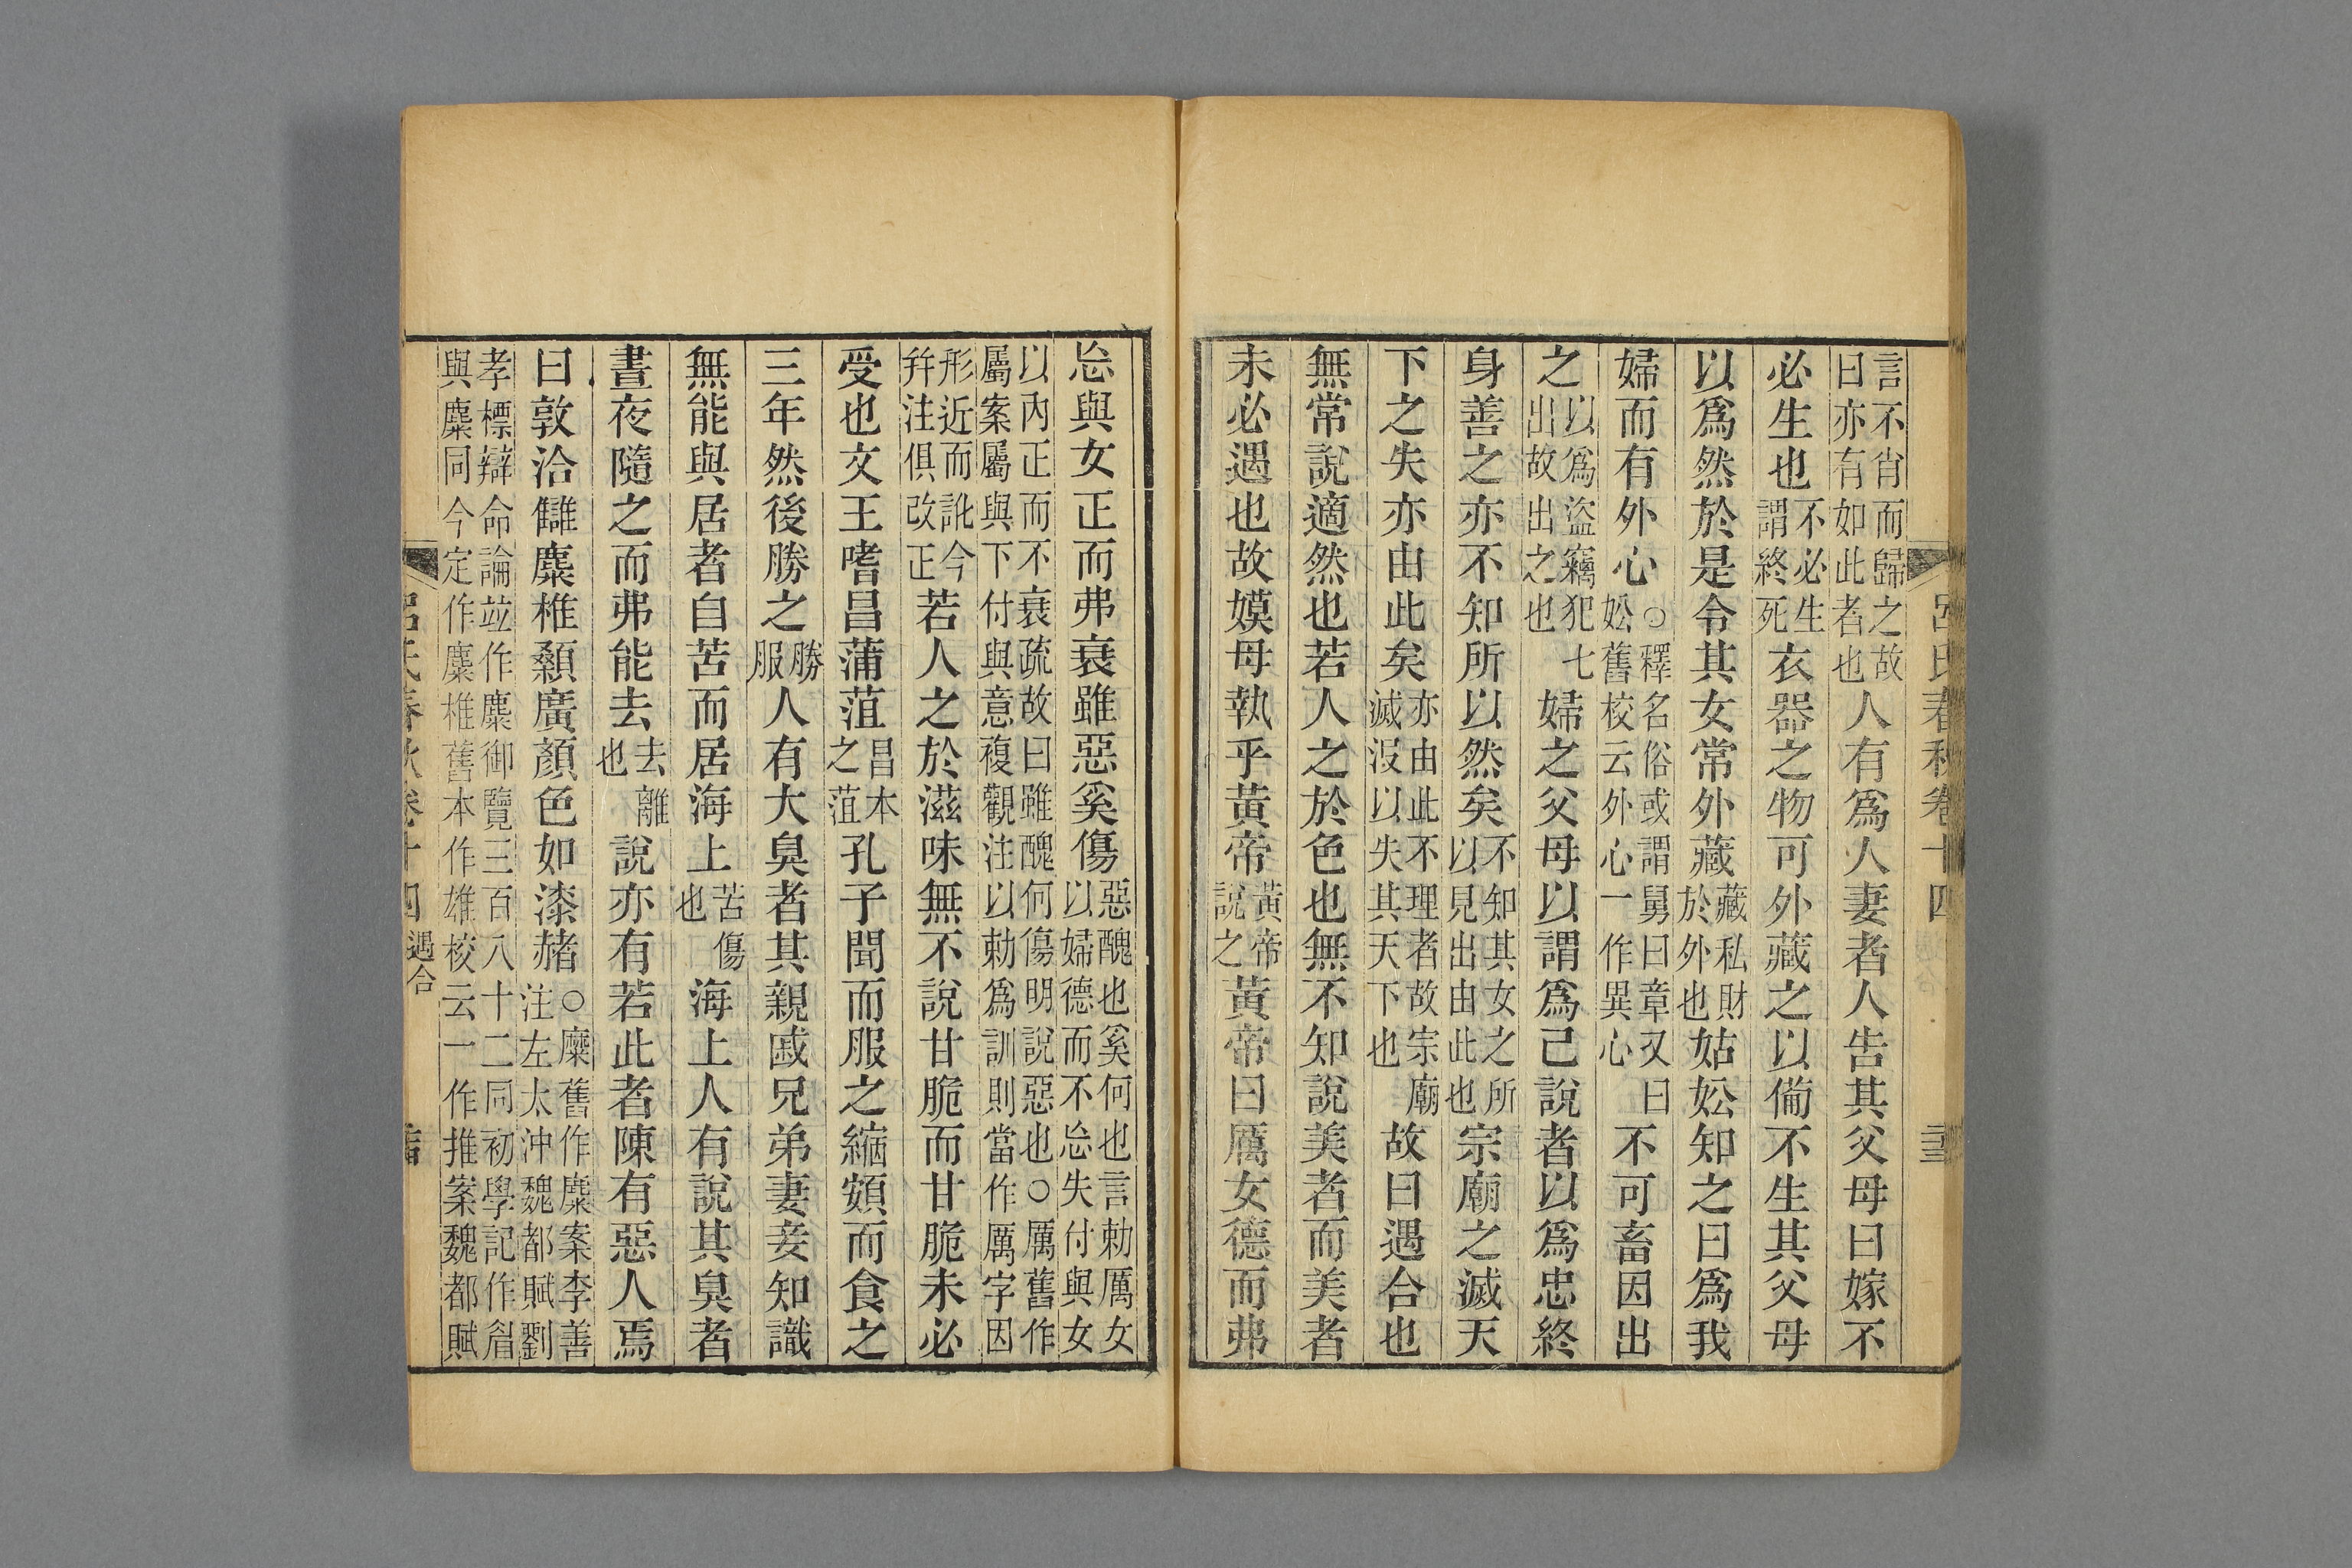 呂氏春秋卷十四
言不肖而歸之故
曰亦有如此者也
人有爲人妻者人告其父母曰嫁不
必生也
不必生
謂終死
衣器之物可外藏之以備不生其父母
以爲然於是令其女常外藏
藏私財
於外也
姑妐知之曰爲我
婦而有外心
○釋名俗或謂舅曰章又曰
妐舊校云外心一作異心
不可畜因出
之
以爲盜竊犯七
出故出之也
婦之父母以謂爲己說者以爲忠終
身善之亦不知所以然矣
不知其女之所
以見出由此也
宗廟之滅天
下之失亦由此矣
亦由此不理者故宗廟
滅沒以失其天下也
故曰遇合也
無常說適然也若人之於色也無不知說美者而美者
未必遇也故嫫母執乎黃帝
黃帝
說之
黃帝曰厲女德而弗
忘與女正而弗衰雖惡奚傷
惡醜也奚何也言勅厲女
以婦德而不忘失付與女
以內正而不衰疏故曰雖醜何傷明說惡也○厲舊作
屬案屬與下付與意複觀注以勅爲訓則當作厲字因
形近而訛今
幷注俱改正
若人之於滋味無不說甘脆而甘脆未必
受也文王嗜昌蒲菹
昌本
之菹
孔子聞而服之縮頞而食之
三年然後勝之
勝
服
人有大臭者其親戚兄弟妻妾知識
無能與居者自苦而居海上
苦傷
也
海上人有說其臭者
晝夜隨之而弗能去
去離
也
說亦有若此者陳有惡人焉
曰敦洽讎麋椎顙廣顏色如漆赭
○麋舊作麇案李善
注左太沖魏都賦劉
孝標辯命論竝作麋御覽三百八十二同初學記作眉
與麋同今定作麋椎舊本作雄校云一作推案魏都賦
呂氏春秋卷十四 遇合